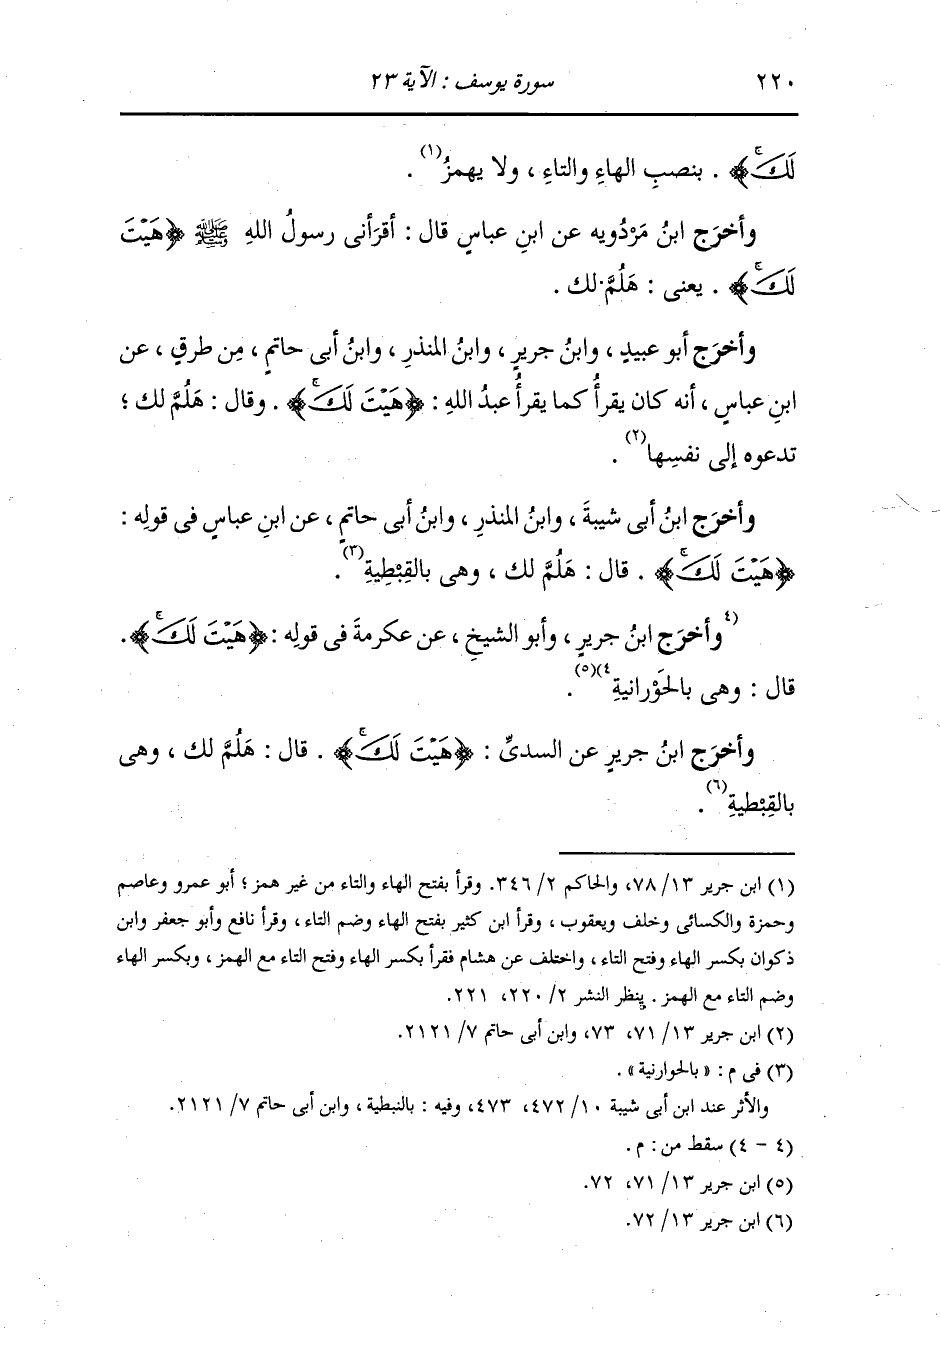 ٢٢٠ سورة يوسف : الآية ٢٣
لَكَۚ﴾ . بنصبِ الهاءِ والتاءِ ، ولا يهمزُ(١) .
وأخرَج ابنُ مَرْدُويه عن ابنِ عباسٍ قال : أقرَأنى رسولُ اللهِ ﷺ ﴿هَيْتَ
لَكَۚ﴾ . يعنى : هَلُمَّ لك .
وأخرَج أبو عبيدٍ ، وابنُ جريرٍ ، وابنُ المنذرِ ، وابنُ أبى حاتمٍ ، مِن طرقٍ ، عن
ابنِ عباسٍ ، أنه كان يقرأُ كما يقرأُ عبدُ اللهِ : ﴿هَيْتَ لَكَۚ﴾ . وقال : هَلُمَّ لك ؛
تدعوه إلى نفسِها(٢) .
وأخرَج ابنُ أبى شيبةَ ، وابنُ المنذرِ ، وابنُ أبى حاتمٍ ، عن ابنِ عباسٍ فى قولِه :
﴿هَيْتَ لَكَۚ﴾ . قال : هَلُمَّ لك ، وهى بالقِبْطِيةِ(٣) .
(٤وأخرَج ابنُ جريرٍ ، وأبو الشيخِ ، عن عكرمةَ فى قولِه : ﴿هَيْتَ لَكَۚ﴾ .
قال : وهى بالحَوْرانيةِ٤)(٥) .
وأخرَج ابنُ جريرٍ عن السدىِّ : ﴿هَيْتَ لَكَۚ﴾ . قال : هَلُمَّ لك ، وهى
بالقِبْطيةِ(٦) .
(١) ابن جرير ١٣/ ٧٨، والحاكم ٢/ ٣٤٦. وقرأ بفتح الهاء والتاء من غير همز ؛ أبو عمرو وعاصم
وحمزة والكسائى وخلف ويعقوب ، وقرأ ابن كثير بفتح الهاء وضم التاء ، وقرأ نافع وأبو جعفر وابن
ذكوان بكسر الهاء وفتح التاء ، واختلف عن هشام فقرأ بكسر الهاء وفتح التاء مع الهمز ، وبكسر الهاء
وضم التاء مع الهمز . ينظر النشر ٢/ ٢٢٠، ٢٢١.
(٢) ابن جرير ١٣/ ٧١، ٧٣، وابن أبى حاتم ٧/ ٢١٢١.
(٣) فى م : « بالحوارنية » .
والأثر عند ابن أبى شيبة ١٠/ ٤٧٢، ٤٧٣، وفيه : بالنبطية ، وابن أبى حاتم ٧/ ٢١٢١.
(٤ - ٤) سقط من : م .
(٥) ابن جرير ١٣/ ٧١، ٧٢.
(٦) ابن جرير ١٣/ ٧٢.